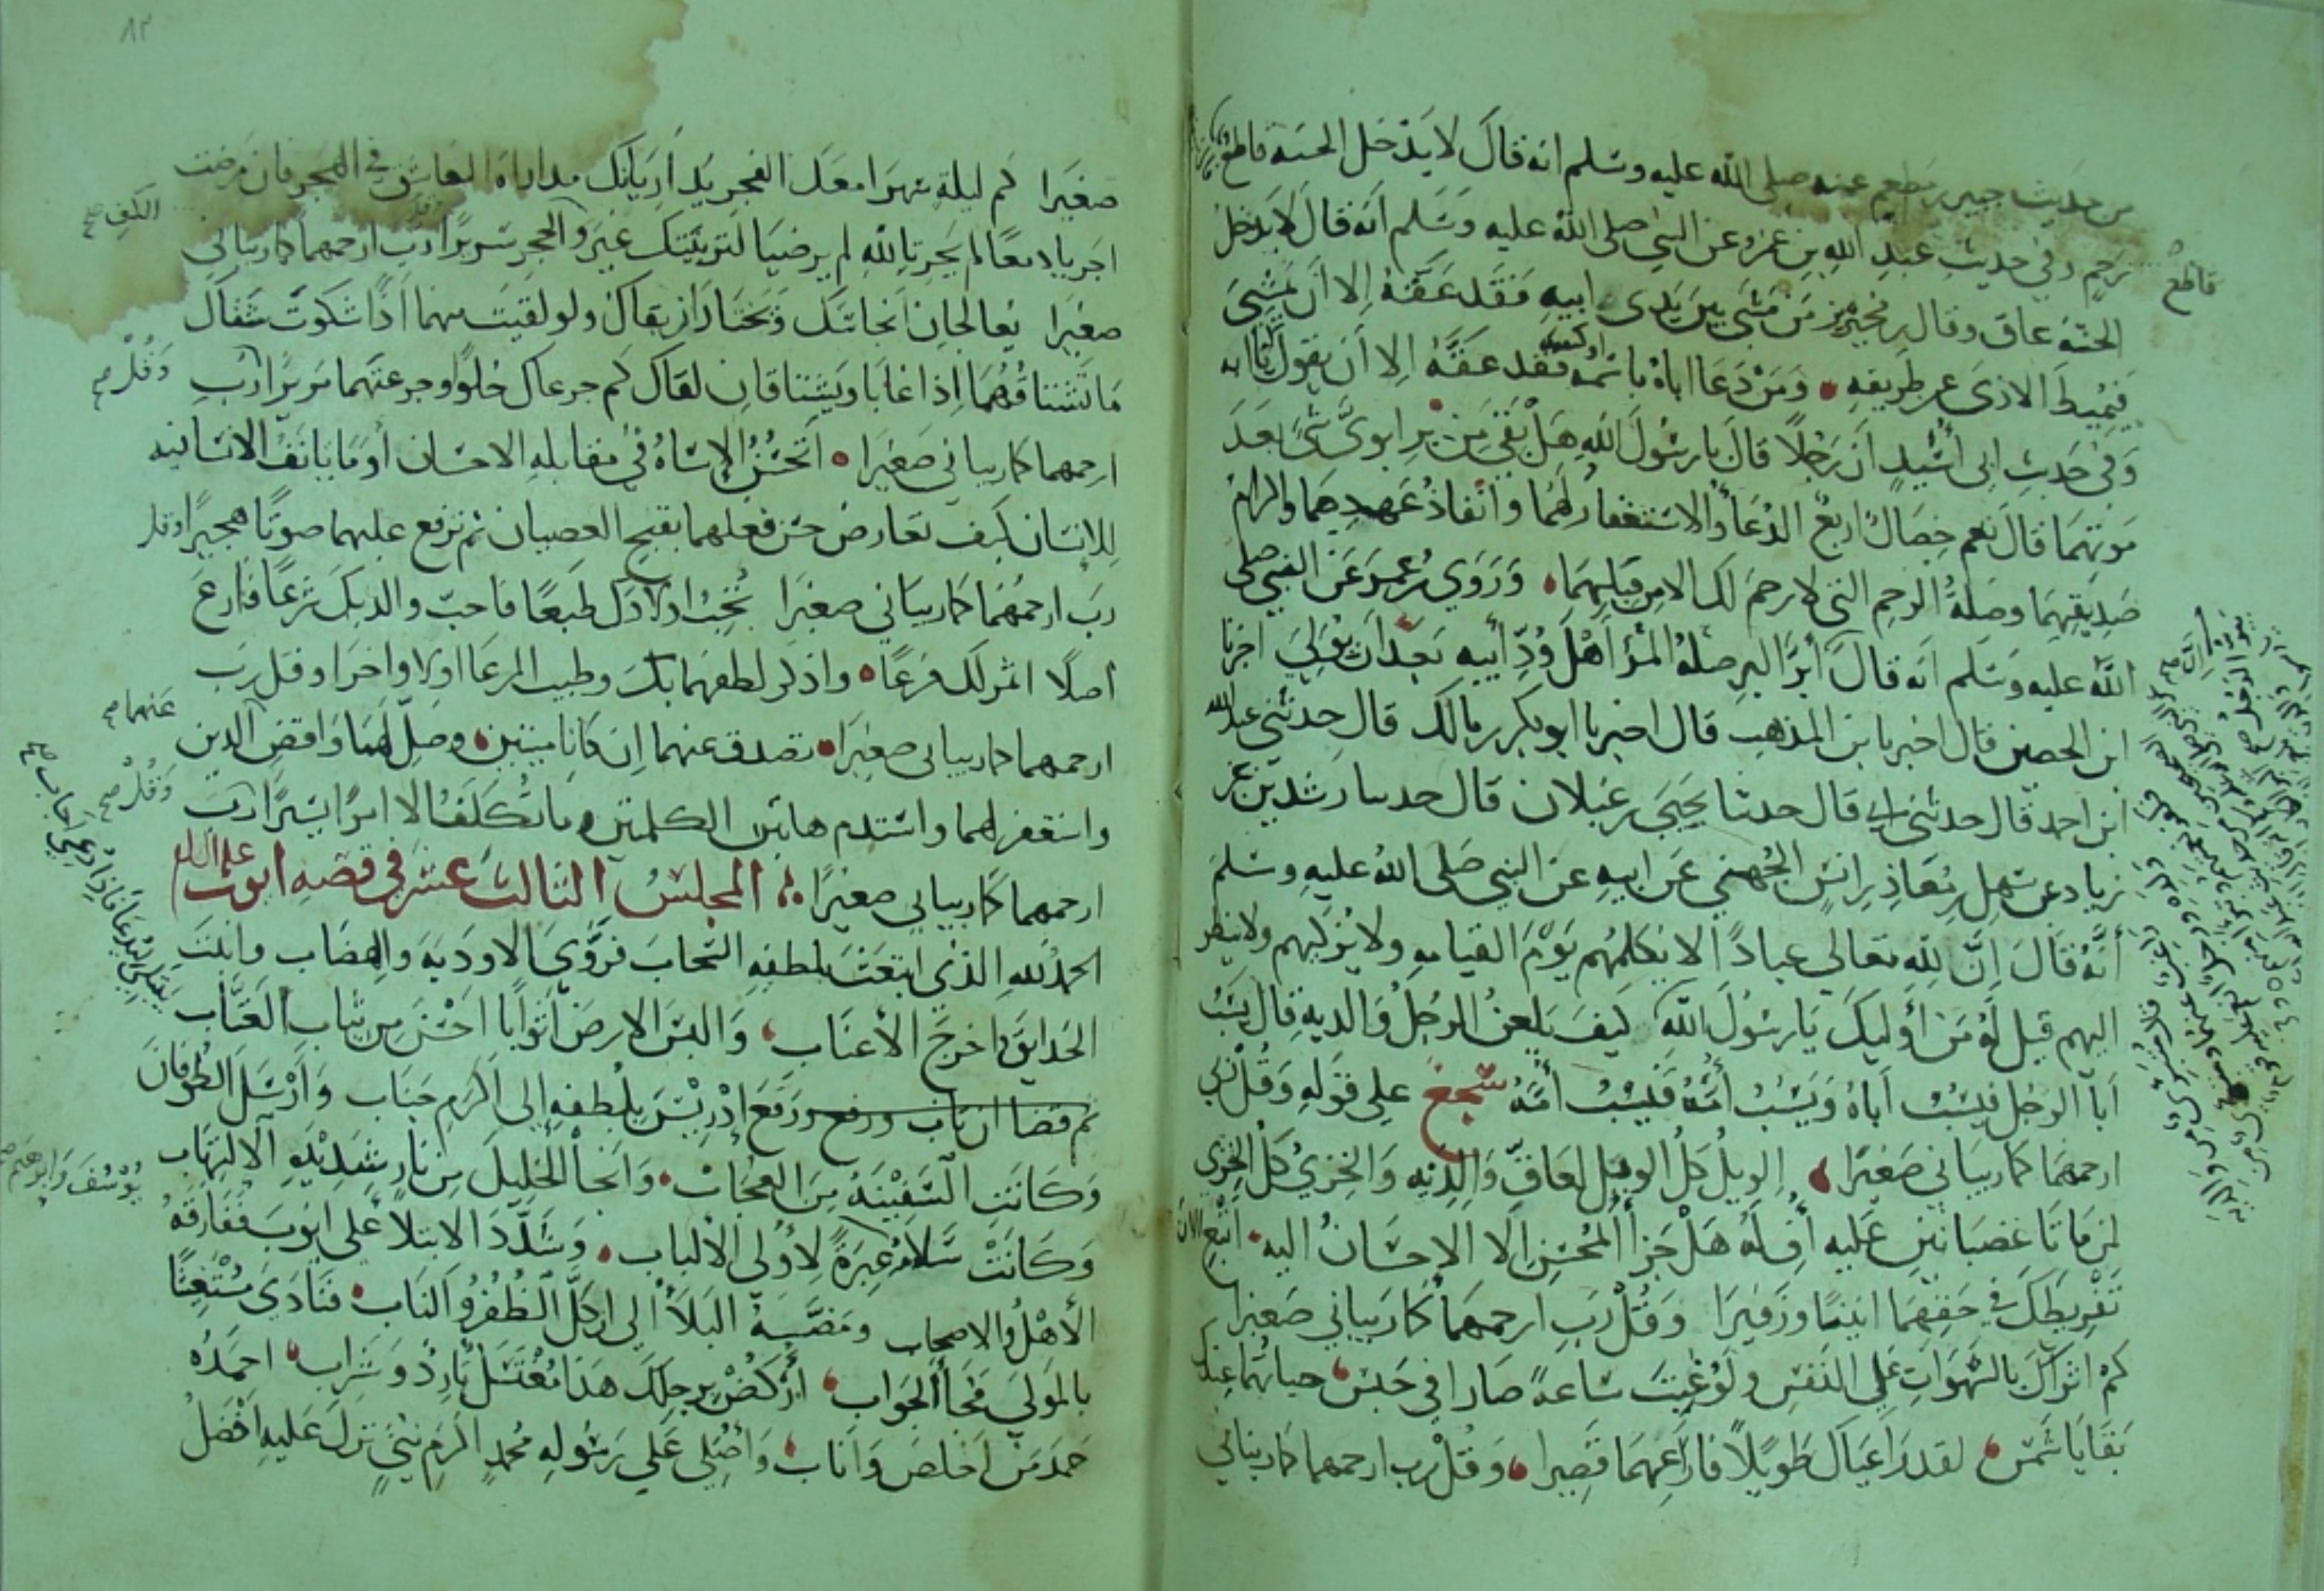 من حديث جبير بن مطعم عنه صلى الله عليه وسلم انه قال لا يدخل الجنة قاطع
رحم وفي حديث عبد الله بن عمرو عن النبي صلى الله عليه وسلم انه قال لا يدخل
الجنة عاق وقال بن محيريز من مشى بين يدى ابيه فقد عقه الا ان يمشي
فيميط الاذى عن طريقه ومن دعا اباه باسمه او كنيته فقد عقه الا ان يقول يا ابه
وفي حديث ابي اسيد ان رجلا قال يا رسول الله هل بقي من بر ابوي شئ بعد
موتهما قال نعم خصال اربع الدعا والاستغفار لهما وانفاذ عهدهما واكرام
صديقهما وصلة الرحم التي لا رحم لك الا من قبلهما وروى بن عمر عن النبي صلى
الله عليه وسلم انه قال ابر البر صلة المرؤ اهل ود ابيه بعد ان يولي اخبرنا
ابن الحصين قال اخبرنا ابن المذهب قال اخبرنا ابو بكر بن مالك قال حدثني عبد الله
ابن احمد قال حدثني ابي قال حدثنا يحيى بن غيلان قال حدثنا رشدين عن
زياد عن سهل بن معاذ بن انس الجهني عن ابيه عن النبي صلى الله عليه وسلم
أنه قال ان لله تعالى عبادا لا يكلمهم يوم القيامه ولا يزكيهم ولا ينظر
اليهم قيل له ومن أوليك يا رسول الله كيف يلعن الرجل والديه قال يسب
أبا الرجل فيسب اباه ويسب أمه فيسب أمه سجع على قوله وقل رب
ارحمهما كما ربياني صغيرا الويل كل الويل لعاق والديه والخزي كل الخزي
لمن ماتا غضبانين عليه أف له هل جزأ المحسن الا الاحسان اليه اتبع الان
تفريطك في حقهما انينا وزفيرا وقل رب ارحمهما كما ربياني صغيرا
كم اثراك بالشهوات على النفس ولو غبت ساعة صارا في حبس حياتهما عندك
بقايا شمس لقد راعياك طويلا فارعهما قصيرا وقل رب ارحمهما كما ربياني
قاطع
صغيرا كم ليلة سهرا معك الى الفجر يداريانك مداراة العاشق في الهجر فان مرضت
اجريا دمعا لم يجر تالله لم يرضيا لتربيتك غير والحجر سريرا رب ارحمهما كما ربياني
صغيرا يعالجان انجاسك ويختاران بقاك ولو لقيت منهما اذا شكوت شفاك
ما تشتاقهما اذا غابا ويشتاقان لقاك كم جرعاك حلوا وجرعتهما مريرا رب
ارحمهما كما ربياني صغيرا اتحسن الاساة في مقابلة الاحسان أوما يانف الانسانيه
للانسان كيف تعارض حسن فعلهما بقبح العصيان ثم ترفع عليهما صوتا هجيرا وقل
رب ارحمهما كما ربياني صغيرا تحب اولادك طبعا فاحب والديك شرعا فارع
أصلا اثمر لك فرعا واذكر لطفهما بك وطيب المرعا اولا واخرا وقل رب
ارحمهما كما ربياني صغيرا تصدق عنهما ان كانا ميتين وصل لهما واقض الدين
واستغفر لهما واستدم هاتين الكلمتين وما تكلف الا امرا يسيرا رب
ارحمهما كما ربياني صغيرا المجلس الثالث عشر في قصة ايوب عليه السلام
الحمد لله الذي ابتعث بلطفه السحاب فروي الاودية والهضاب وانبت
الحدايق واخرج الاعناب والبس الارض اثوابا احسن من ثياب العتاب
ثم قضا ان تاب ورفع ورفع إدريس بلطفه الى اكرم جناب وأرسل الطوفان
وكانت السفينة من العجاب وانجا الخليل من نار شديدة الالتهاب
وكانت سلامة عبرة لأولي الألباب وشدد الابتلأ على ايوب ففارقه
الأهل والاصحاب ومضه البلأ الى ان كل الظفر والناب فنادى مستغيثا
بالمولى فجأ الجواب أركض برجلك هذا مغتسل بارد وشراب احمده
حمد من اخلص واناب وأصلي على رسوله محمد اكرم نبي نزل عليه افضل
الكف صح
وقل صح
عنهما صح
وقل صح
يوسف وابرهيم
٨٢